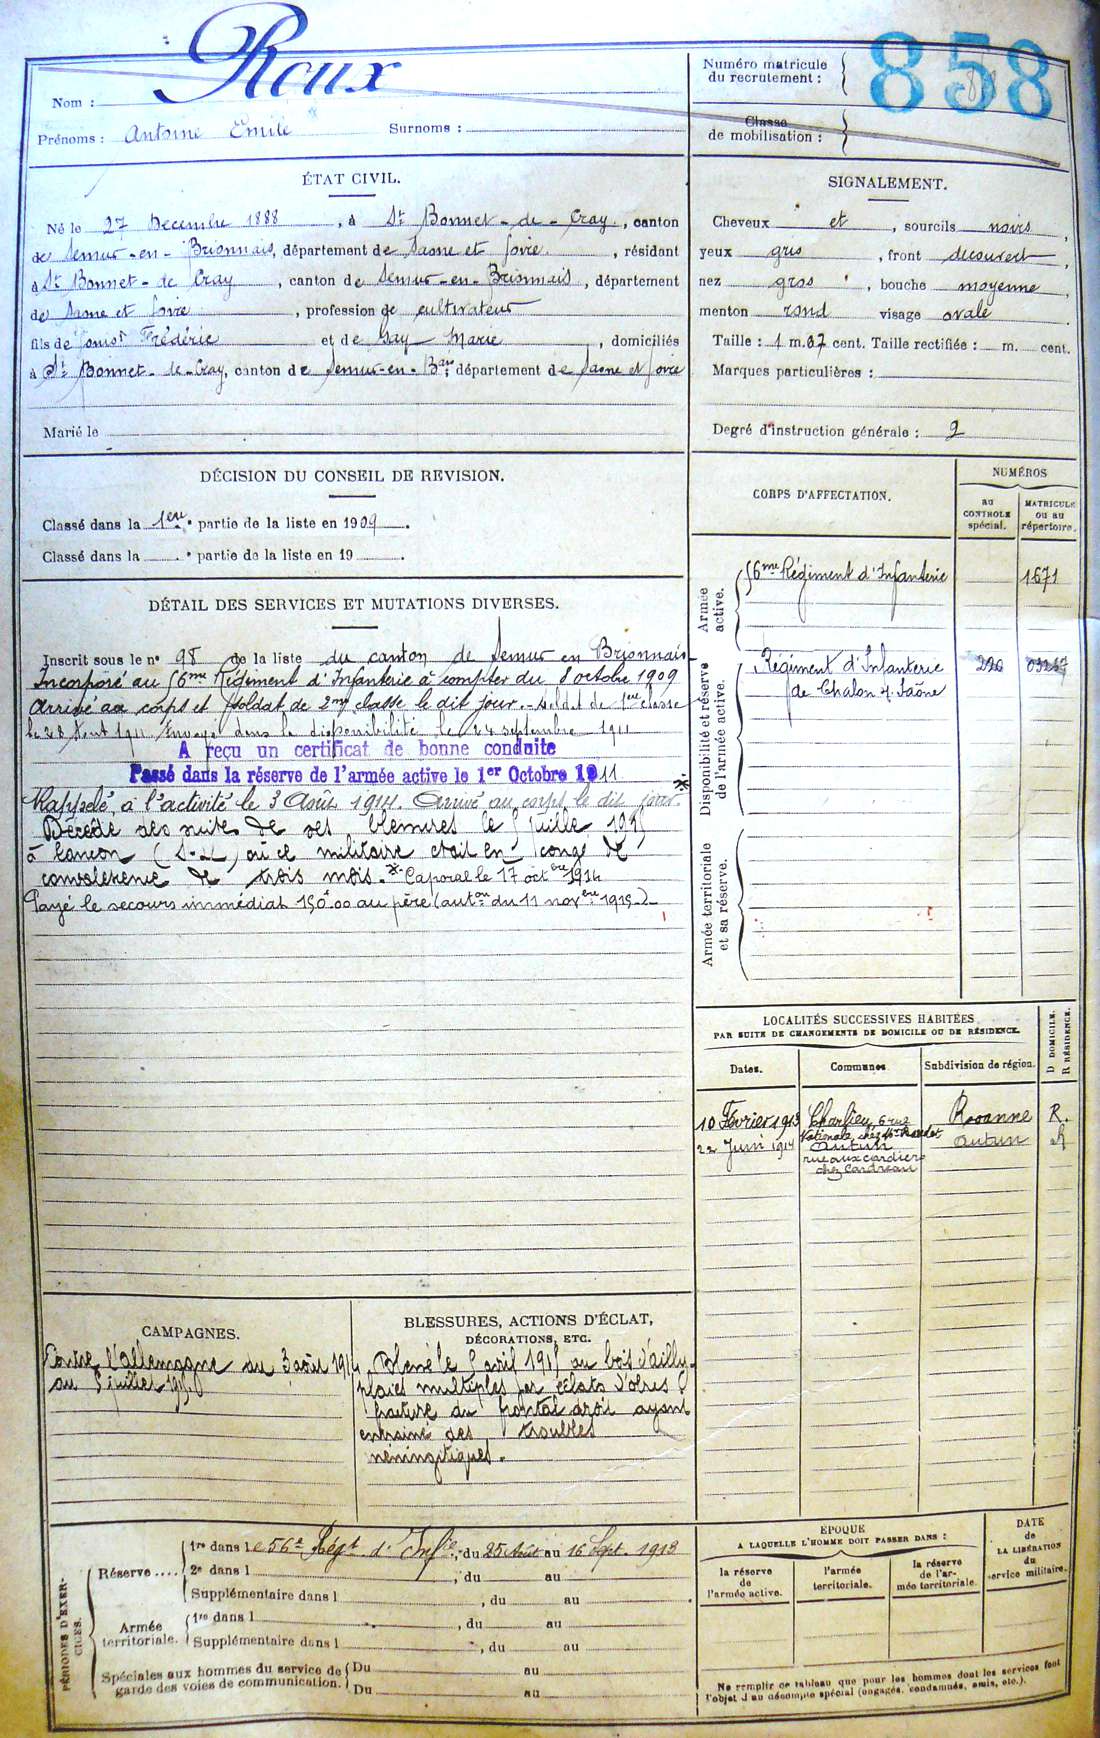 Nom : Roux
Prénoms : Antoine Emile Surnoms :
Numéro matricule
du recrutement : 858
Classe
de mobilisation :
ÉTAT CIVIL.
Né le 27 Décembre 1888, à St Bonnet-de-Cray, canton
de Semur-en-Brionnais, département de Saône et Loire, résidant
à St Bonnet-de Cray, canton de Semur-en-Brionnais, département
de Saône et Loire, profession de cultivateur
fils de Frédéric et de Gay Marie, domiciliés
à St Bonnet-de-Cray, canton de Semur-en-Bais département de Saone et Loire
Marié le
SIGNALEMENT.
Cheveux et, sourcils noirs,
yeux gris, front découvert,
nez gros, bouche moyenne,
menton rond visage ovale
Taille : 1 m. 67 cent. Taille rectifiée : m. cent.
Marques particulières :
Degré d'instruction générale : 2
DÉCISION DU CONSEIL DE REVISION.
Classé dans la 1ere partie de la liste en 1909.
Classé dans la e partie de la liste en 19 .
DÉTAIL DES SERVICES ET MUTATIONS DIVERSES.
Inscrit sous le no 98 de la liste du canton de Semur en Brionnais
Incorporé au 56me Régiment d'Infanterie à compter du 8 octobre 1909
Arrivé au corps et soldat de 2me classe le dit jour. Soldat de 1ere classe
le 28 Aout 1911 Envoyé dans la disponibilité le 24 septembre 1911
A reçu un certificat de bonne conduite
Passé dans la réserve de l'armée active le 1er Octobre 1911
Rappelé à l'activité le 3 Août 1914. Arrivé au corps le dit jour. *
Décédé des suites de ses blessures le 5 juillet 1915
à (S-&-L) où ce militaire était en congé de
convalescence de trois mois. * Caporal le 17 octbre 1914
Payé le secours immédiat 150f00 au père (auton du 11 novere 1915)
CORPS D'AFFECTATION.
NUMÉROS
au
CONTROLE
spécial.
MATRICULE
ou au
répertoire.
Armée
active.
56me Régiment d'Infanterie 1571
Disponibilité et réserve
de l'armée active.
Régiment d'Infanterie 220
de Chalon s/ Saône
Armée territoriale
et sa réserve.
LOCALITÉS SUCCESSIVES HABITÉES
PAR SUITE DE CHANGEMENTS DE DOMICILE OU DE RÉSIDENCE.
Dates. Communes. Subdivision de région. D DOMICILE. R RÉSIDENCE.
10 Février 1913 Charlieu, 6 rue Roanne R.
Nationale chez Mr
22 Juin 1914 Autun Autun R
rue aux cordiers
chez
CAMPAGNES.
Contre l'Allemagne du 3 août 1914
au 5 juillet 1915
BLESSURES, ACTIONS D'ÉCLAT,
DÉCORATIONS, ETC.
Blessé le 5 avril 1915 au bois d'Ailly
plaies multiples par éclats d'obus
fracture du frontal droit ayant
entrainé des troubles
méningitiques.
PÉRIODES D'EXERCICES.
Réserve....
1re dans le 56e Régt d'Infie, du 25 Août au 16 Sept. 1913
2e dans l , du au
Supplémentaire dans l , du au
Armée
territoriale.
1re dans l , du au
Supplémentaire dans l , du au
Spéciales aux hommes du service de
garde des voies de communication.
Du au
Du au
ÉPOQUE
A LAQUELLE L'HOMME DOIT PASSER DANS :
la réserve
de
l'armée active.
l'armée
territoriale.
la réserve
de l'ar-
mée territoriale.
DATE
de
LA LIBÉRATION
du
service militaire.
Ne remplir ce tableau que pour les hommes dont les services font
l'objet d'un décompte spécial (engagés, condamnés, omis, etc.).